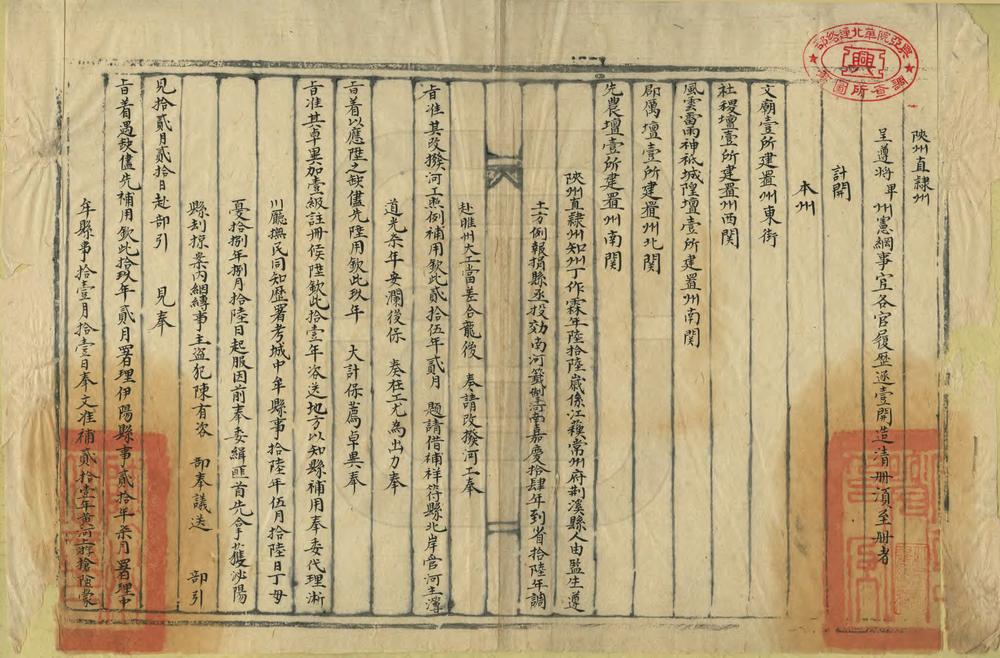 陝州直隸州
呈遵將卑州憲綱事宜各官履歷逐壹開造清冊湏至冊者
計開
本州
文廟壹所建置州東街
社稷壇壹所建置州西関
風雲雷雨神祇城隍壇壹所建置州南関
郡厲壇壹所建置州北関
先農壇壹所建置州南関
陝州直隸州知州丁作霖年陸拾陸嵗係江蘇常州府荆溪縣人由監生遵
土方例報捐縣丞投効南河籤掣河南嘉慶拾肆年到省拾陸年調
赴睢州大工當差合龍後 奏請改撥河工奉
旨准其改撥河工照例補用欽此貳拾伍年貳月 題請借補祥符縣北岸管河主簿
道光柒年安瀾後保 奏在工尤為出力奉
旨着以應陞之缺儘先陞用欽此玖年 大計保薦卓異奉
旨准其卓異加壹級註冊候陞欽此拾壹年咨送地方以知縣補用奉委代理淅
川廳撫民同知歷署考城中牟縣事拾陸年伍月拾陸日丁母
憂拾捌年捌月拾陸日起服因前奉委緝匪首先拿獲泌陽
縣刦掠案內綑縛事主盗犯陳有咨 部奉議送 部引
見拾貳月貳拾日赴部引 見奉
旨着遇缺儘先補用欽此拾玖年貳月署理伊陽縣事貳拾年柒月署理中
牟縣事拾壹月拾壹日奉文准補貳拾壹年黄河搶險蒙
興亞院華北連絡部
調查所圖書
興